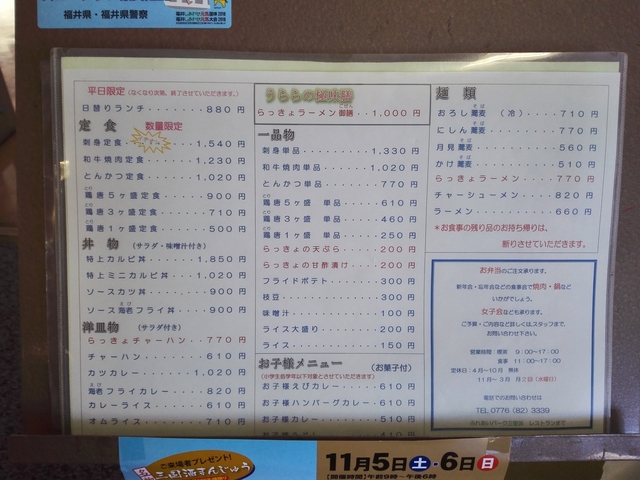 福井県・福井県警察
平日限定 (なくなり次第、終了させていただきます。)
日替りランチ・・・・・・880円
定食 数量限定
刺身定食・・・・・・1,540円
和牛焼肉定食・・・・1,230円
とんかつ定食・・・・1,020円
鶏唐５ヶ盛定食・・・・900円
鶏唐３ヶ盛定食・・・・710円
鶏唐１ヶ盛定食・・・・500円
丼物 (サラダ・味噌汁付き)
特上カルビ丼・・・・1,850円
特上ミニカルビ丼・・1,020円
ソースカツ丼・・・・・900円
ソース海老フライ丼・・900円
洋皿物 (サラダ付き)
らっきょチャーハン・・770円
チャーハン・・・・・・610円
カツカレー・・・・・1,020円
海老フライカレー・・・820円
カレーライス・・・・・610円
オムライス・・・・・・710円
うららの極味膳
らっきょラーメン御膳・・1,000円
一品物
刺身単品・・・・・・1,330円
和牛焼肉単品・・・・1,020円
とんかつ単品・・・・・770円
鶏唐５ヶ盛 単品・・・610円
鶏唐３ヶ盛 単品・・・460円
鶏唐１ヶ盛 単品・・・250円
らっきょの天ぷら・・・200円
らっきょの甘酢漬け・・200円
フライドポテト・・・・300円
枝豆・・・・・・・・・300円
味噌汁・・・・・・・・100円
ライス大盛り・・・・・200円
ライス・・・・・・・・150円
お子様メニュー (お菓子付)
(小学生低学年以下対象とさせていただきます)
お子様えびカレー・・・610円
お子様ハンバーグカレー・610円
お子様カレー・・・・・510円
麺類
おろし蕎麦 (冷)・・・・710円
にしん蕎麦・・・・・・770円
月見蕎麦・・・・・・・560円
かけ蕎麦・・・・・・・510円
らっきょラーメン・・・770円
チャーシューメン・・・820円
ラーメン・・・・・・・660円
＊お食事の残り品のお持ち帰りは、
断りさせていただきます。
お弁当のご注文承ります。
新年会・忘年会などの食事会で焼肉・鍋など
いかがでしょう。
女子会なども承ります。
ご予算・ご内容など詳しくはスタッフまで、
お問い合わせ下さい。
営業時間：喫茶 9：00〜17：00
食事 11：00〜17：00
定休日：4月〜10月 無休
11月〜3月 月２回(水曜日)
電話でのお問い合わせは
TEL 0776 (82) 3339
ふれあいパーク三里浜 レストランまで
ご来場者プレゼント!
三国酒まんじゅう
11月5日土・6日日
[開催時間]午前9時〜午後6時